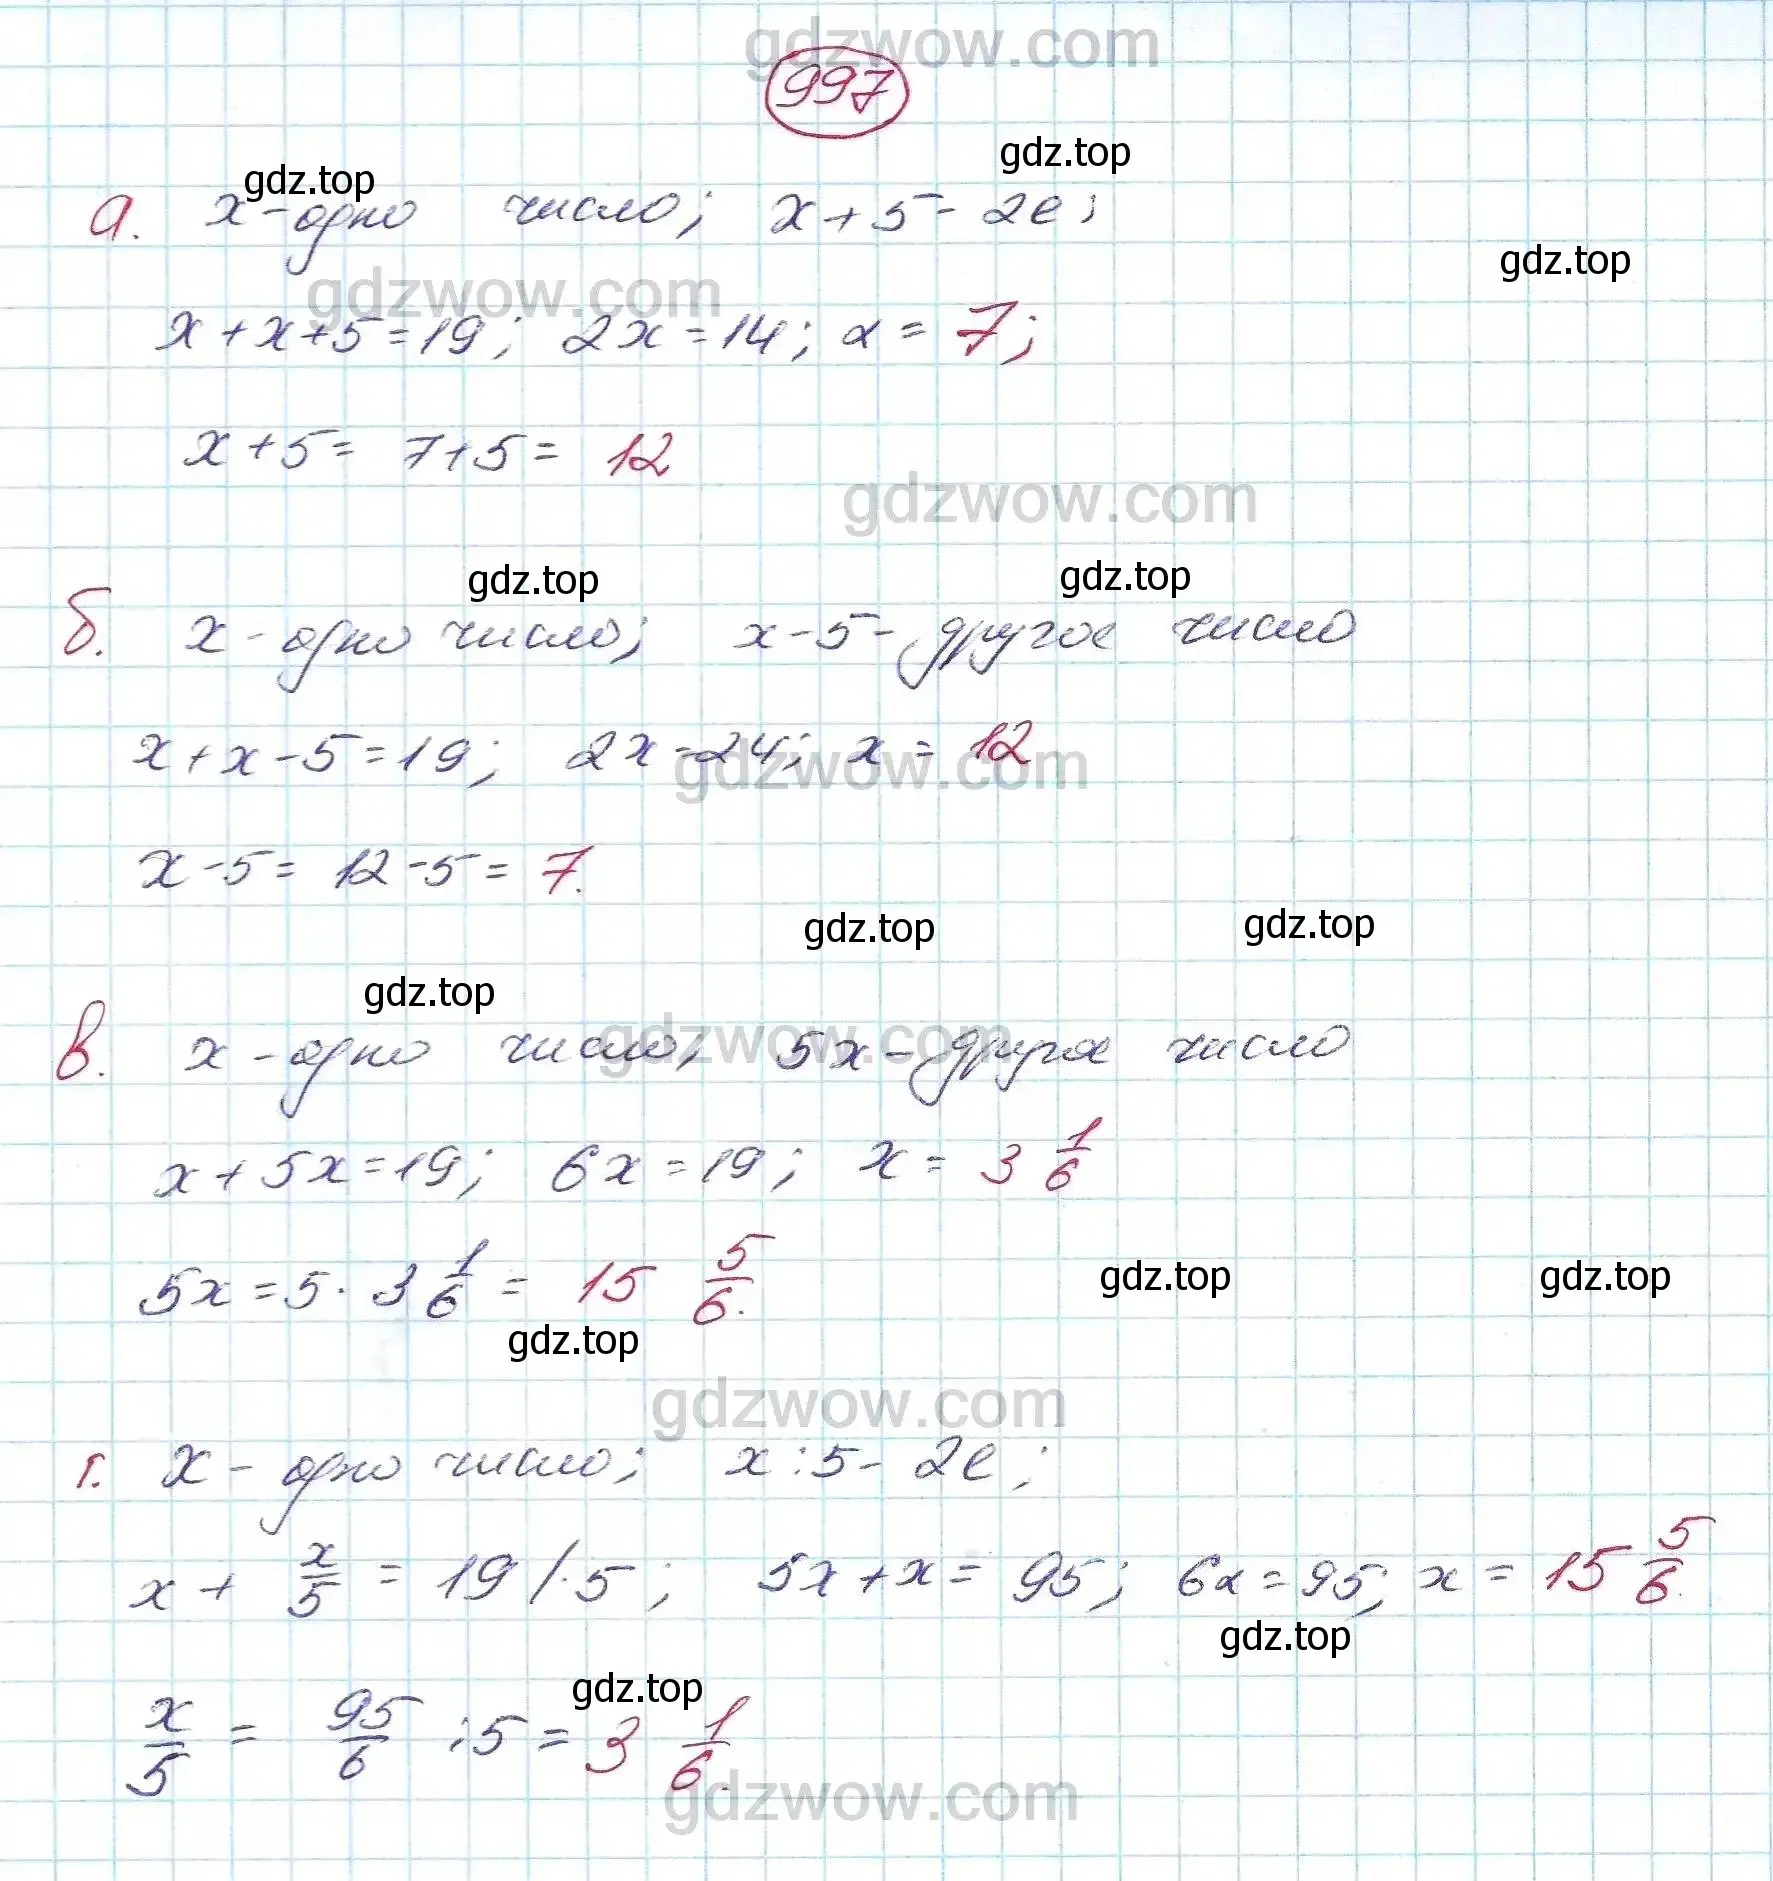 gdzwow.com
997
gdz.top
gdz.top
а. x - одно число; x + 5 - 2е;
gdz.top
gdzwow.com
x + x + 5 = 19; 2x = 14; x = 7;
x + 5 = 7 + 5 = 12
gdzwow.com
gdz.top gdz.top
б. x - одно число; x - 5 - другое число
x + x - 5 = 19; 2x = 24; x = 12
gdzwow.com
x - 5 = 12 - 5 = 7.
gdz.top gdz.top
gdz.top
в. x - одно число; 5x - другое число
gdzwow.com
x + 5x = 19; 6x = 19; x = 3 1/6
5x = 5 · 3 1/6 = 15 5/6.
gdz.top gdz.top
gdz.top
gdzwow.com
г. x - одно число; x : 5 - 2е;
x + x/5 = 19 / · 5; 5x + x = 95; 6x = 95; x = 15 5/6.
gdz.top
gdz.top
x/5 = 95/6 : 5 = 3 1/6.
gdzwow.com